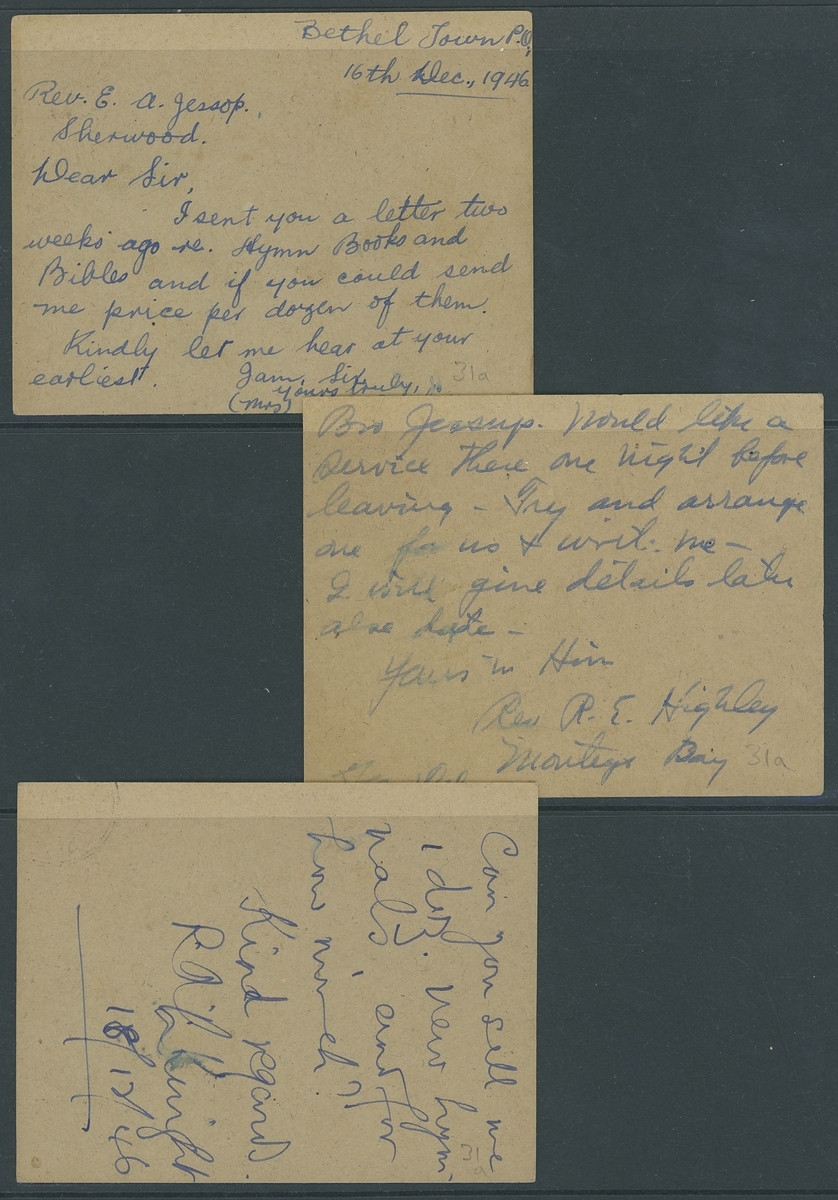 Bethel Town P.O,
16th Dec., 1946
Rev. E. A. Jessop.
Sherwood.
Dear Sir,
I sent you a letter two
weeks ago re. Hymn Books and
Bibles and if you could send
me price per dozen of them.
Kindly let me hear at your
earliest.
I am, Sir
yours truly,
(Mrs)
31a
Bro Jessup. Would like a
service there one night before
leaving – Try and arrange
one for us + write me –
I will give details later
also date –
Yours in Him
Rev R. E. Highley
Montego Bay
31a
Can you sell me
1 doz. new hym-
nals, and for
how much?
Kind regards.
Knight
18/12/46
31a